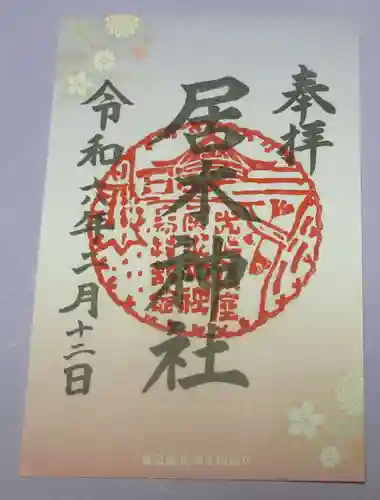 奉拝
居木神社
令和六年二月十二日